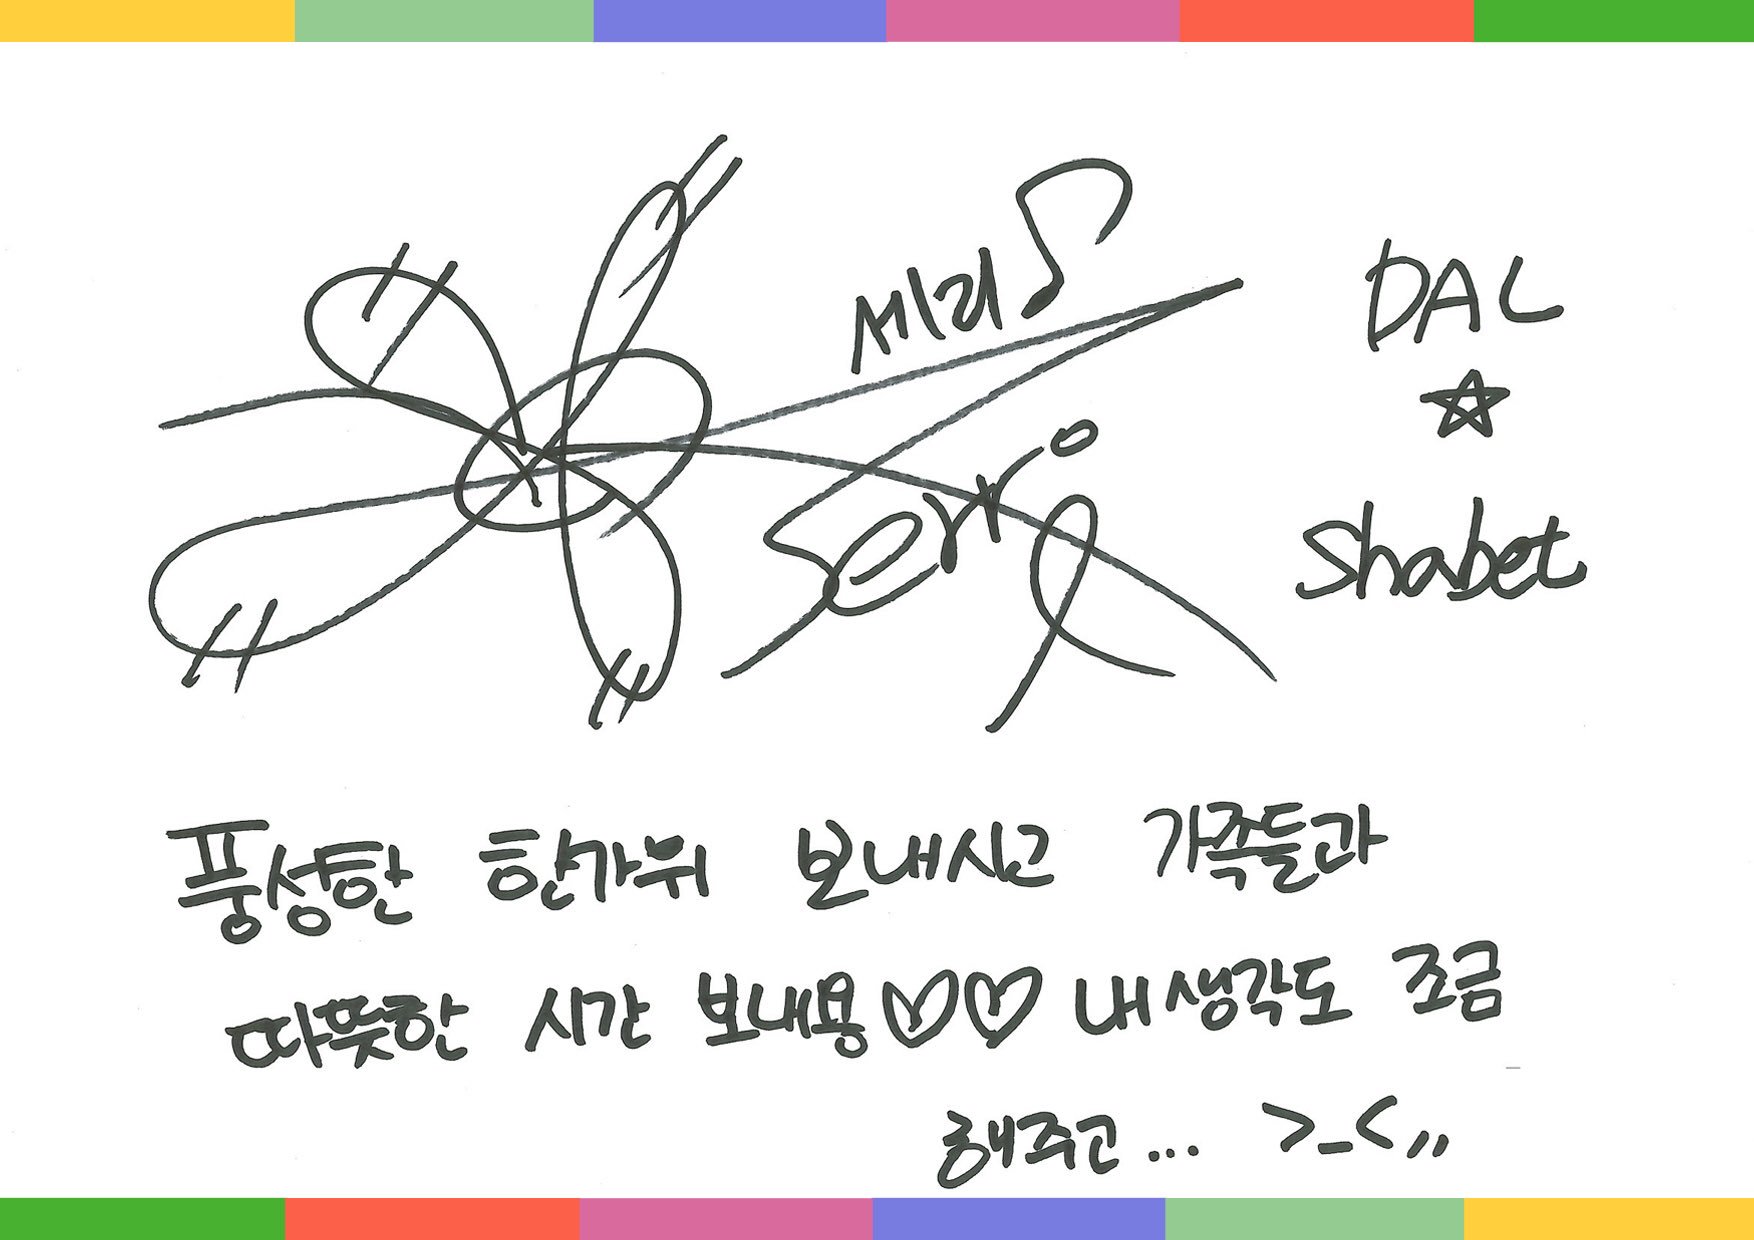 세리
Serri
DAL
☆
Shabet
풍성한 한가위 보내시고 가족들과
따뜻한 시간 보내용♡♡ 내 생각도 조금
해주고... >_<,,